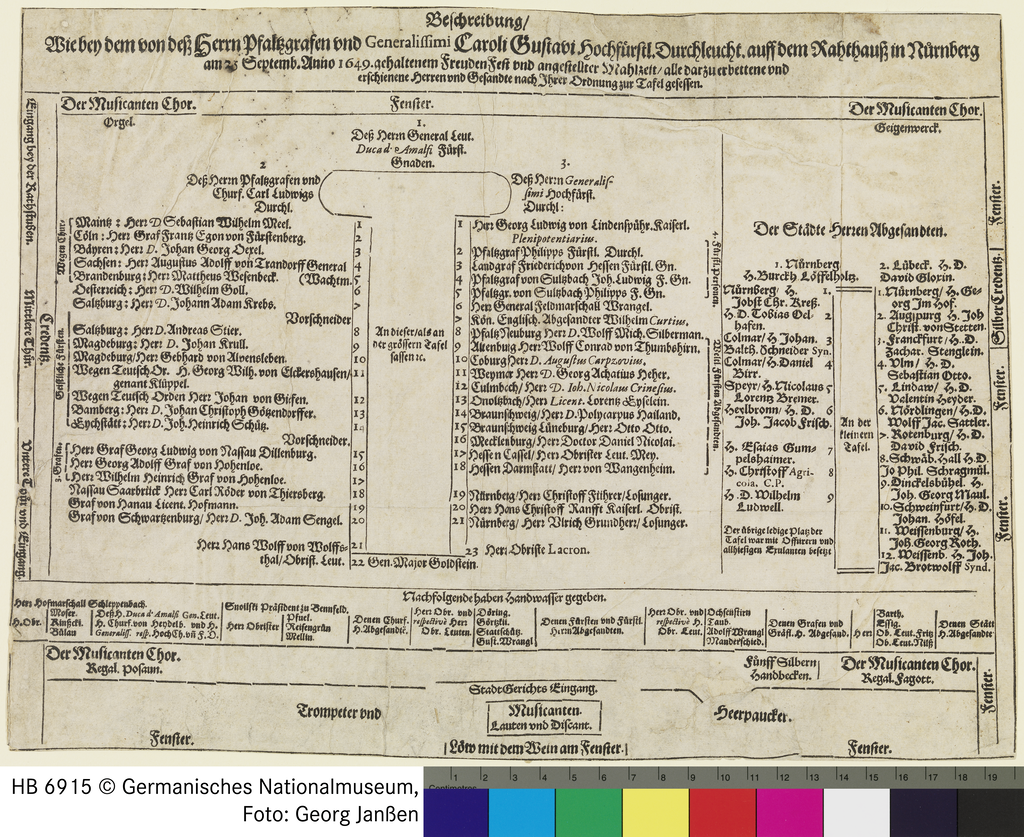 Beschreibung/
Wie bey dem von deß Herrn Pfaltzgrafen vnd Generalissimi Caroli Gustavi Hochfürstl. Durchleucht. auff dem Rahthauß in Nürnberg
am 25 Septemb. Anno 1649. gehaltenem FreudenFest vnd angestellter Mahlzeit/ alle darzu erbettene vnd
erschienene Herren vnd Gesandte nach Ihrer Ordnung zur Tafel gesessen.
Eingang bey der Rathstuben.
Mittlere Thür.
Vntere Thür vnd Eingang.
Credentz.
Der Musicanten Chor.
Orgel.
Fenster.
Der Musicanten Chor.
Geigenwerck.
1.
Deß Herrn General Leut.
Duca d'Amalfi Fürstl.
Gnaden.
2
Deß Herrn Pfaltzgrafen vnd
Churf. Carl Ludwigs
Durchl.
3.
Deß Herrn Generalis-
simi Hochfürst.
Durchl:
Wegen Churf.
Maintz: Herr D Sebastian Wilhelm Meel. 1
Cöln: Herr Graf Frantz Egon von Fürstenberg. 2
Bäyren: Herr D. Johan Georg Oexel. 3
Sachsen: Herr Augustus Adolff von Trandorff General 4
Brandenburg: Herr Mattheus Wesenbeck. (Wachtm. 5
Oesterreich: Herr D. Wilhelm Goll. 6
Saltzburg: Herr D. Johann Adam Krebs. 7
Vorschneider
Geistliche Fürsten.
Saltzburg: Herr D. Andreas Stier. 8
Magdeburg: Herr D. Johan Krull. 9
Magdeburg/ Herr Gebhard von Alvensleben. 10
Wegen Teutsch Or. H. Georg Wilh. von Elckershausen/ 11
genant Klüppel.
Wegen Teutsch Orden Herr Johan von Giesen. 12
Bamberg: Herr D. Johan Christoph Götzendorffer. 13
Eychstätt: Herr D. Joh. Heinrich Schütz. 14
Vorschneider.
Grafen.
Herr Graf Georg Ludwig von Nassau Dillenburg. 15
Herr Georg Adolff Graf von Hohenloe. 16
Herr Wilhelm Heinrich Graf von Hohenloe. 17
Nassau Saarbrück Herr Carl Röder von Thiersberg. 18
Graf von Hanau Licent. Hofmann. 19
Graf von Schwartzenburg/ Herr D. Joh. Adam Sengel. 20
Herr Hans Wolff von Wolffs- 21
thal/ Obrist. Leut.
22 Gen. Major Goldstein.
23 Herr Obriste Lacron.
An dieser/ als an
der grössern Tafel
sassen ec.
1 Herr Georg Ludwig von Lindenspühr. Kaiserl.
Plenipotentiarius.
4. Fürstl. Personen.
2 Pfaltzgraf Philipps Fürstl. Durchl.
3 Landgraf Friederich von Hessen Fürstl. Gn.
4 Pfaltzgraf von Sultzbach Joh. Ludwig F. Gn.
5 Pfaltzgr. von Sultzbach Philipps F. Gn.
6 Herr General Feldmarschall Wrangel.
7 Kön. Englisch. Abgesandter Wilhelm Curtius.
Weltl. Fürsten Abgesandten.
8 Pfaltz Neuburg Herr D. Wolff Mich. Silberman.
9 Altenburg Herr Wolff Conrad von Thumbshirn.
10 Coburg Herr D. Augustus Carpzovius.
11 Weymar Herr D. Georg Achatius Heher.
12 Culmbach/ Herr D. Joh. Nicolaus Crinesius.
13 Onoltzbach/ Herr Licent. Lorentz Eyselein.
14 Braunschweig/ Herr D. Polycarpus Hailand.
15 Braunschweig Lüneburg/ Herr Otto Otto.
16 Mecklenburg/ Herr Doctor Daniel Nicolai.
17 Hessen Cassel/ Herr Obrister Leut. Mey.
18 Hessen Darmstatt/ Herr von Wangenheim.
19 Nürnberg/ Herr Christoff Führer/ Losunger.
20 Herr Hans Christoff Ranfft Kaiserl. Obrist.
21 Nürnberg/ Herr Vlrich Grundherr/ Losunger.
Der Städte Herren Abgesandten.
1. Nürnberg
H. Burckh Löffelholtz.
Nürnberg/ H. 1.
Jobst Chr. Kreß.
H. D. Tobias Oel- 2
hafen.
Colmar/ H Johan. 3
Baltz. Schneider Syn.
Colmar/ H. Daniel 4
Birr.
Speyr/ H. Nicolaus 5
Lorentz Bremer.
Heylbronn/ H. D. 6
Joh. Jacob Frisch.
H. Esaias Gum- 7
pelshaimer.
H. Christoff Agri- 8
cola. C. P.
H. D. Wilhelm 9
Ludwell.
Der übrige ledige Platz der
Tafel war mit Officirern vnd
allhiesigen Exulanten besetzt
An der
kleinern
Tafel.
2. Lübeck. H. D.
David Gloxin.
1. Nürnberg/ H. Ge-
org Im Hof.
2. Augspurg H. Joh
Christ. von Stetten.
3. Franckfurt/ H. D.
Zachar. Stenglein.
4. Vlm/ H. D.
Sebastian Otto.
5. Lindaw/ H. D.
Valentin Heyder.
6. Nördlingen/ H. D.
Wolff Jac. Sattler.
7. Rotenburg/ H. D.
David Frisch.
8. Schwäb. Hall H. D.
Jo Phil. Schragmül.
9. Dinckelsbühel/ H.
Joh. Georg Maul.
10. Schweinfurt/ H. D.
Johan. Höfel.
11. Weissenburg/ H.
Joh. Georg Roth.
12. Weissenb. H. Joh.
Jac. Brotwolff Synd.
Fenster.
Silber Credentz.
Fenster.
Fenster.
Nachfolgende haben Handwasser gegeben.
Herr Hofmarschall Schleppenbach.
H. Obr.
Moser.
Kinßecki.
Bülau
Deß H. Duca d'Amalfi Gen. Leut.
H. Churf. von Heydelb. vnd H.
Generaliss. resp. Hoch Ch. vñ F. D.
Snoilski Präsident zu Bennfeld.
Herr Obrister
Pfuel.
Reisengrün
Mellin.
Denen Churf.
H. Abgesandtē.
Herr Obr. vnd
respective Herr
Obr. Leuten.
Döring.
Görtzki.
Stattschütz.
Gust. Wrangl
Denen Fürsten vnd Fürstl.
Herrn Abgesandten.
Herr Obr. vnd
respective H.
Obr. Leut.
Ochsenstirn
Taub.
Adolff Wrangl
Manderschied.
Denen Grafen vnd
Gräfl. H. Abgesand.
Herr
Barth.
Essig.
Ob. Leut. Fritz
Ob. Leut. Nilß
Denen Stätt
H. Abgesandtē
Der Musicanten Chor.
Regal. Posaun.
Fünff Silbern
Handbecken.
Der Musicanten Chor.
Regal. Fagott.
Fenster.
StadtGerichts Eingang.
Trompeter vnd
Musicanten.
Lauten vnd Discant.
Heerpaucker.
Fenster.
Löw mit dem Wein am Fenster.
Fenster.
HB 6915 © Germanisches Nationalmuseum,
Foto: Georg Janßen
1 2 3 4 5 6 7 8 9 10 11 12 13 14 15 16 17 18 19
Centimetres